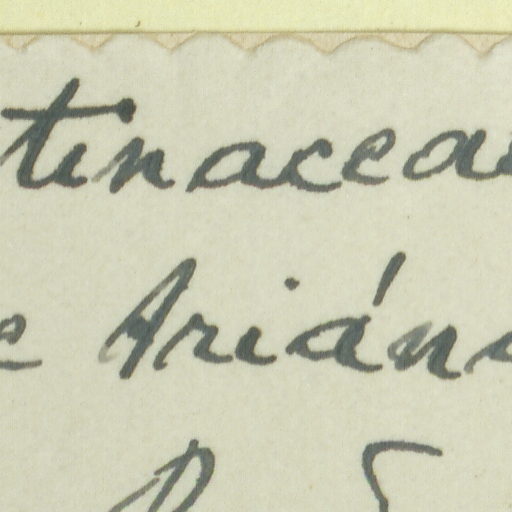 tinacea
e Arián